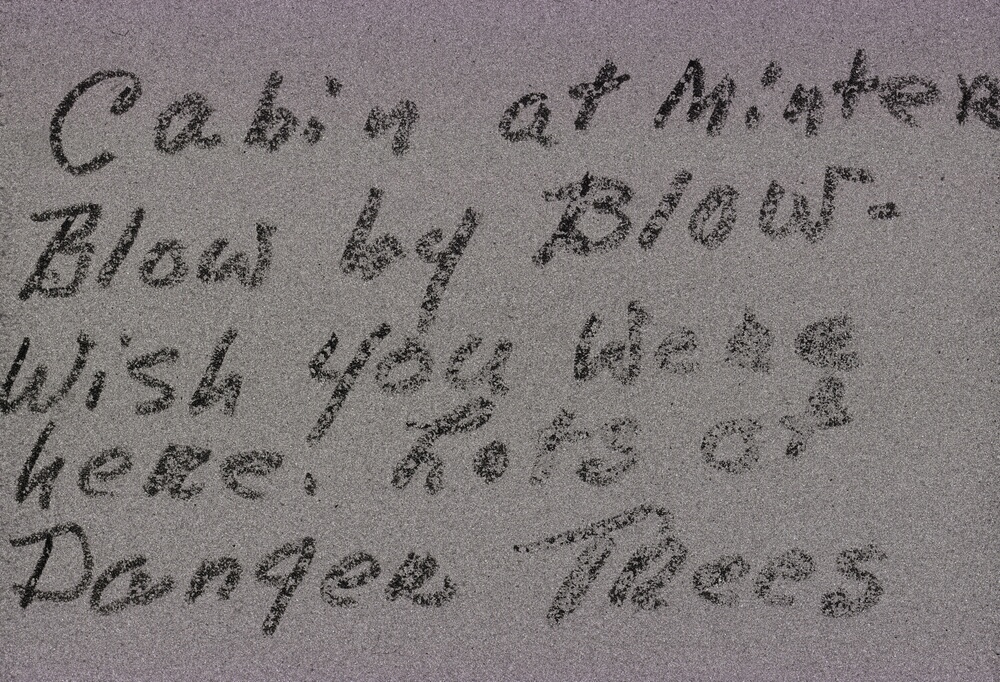 Cabin at Minter
Blow by Blow-
Wish you Were
here. Lots of
Danger Trees